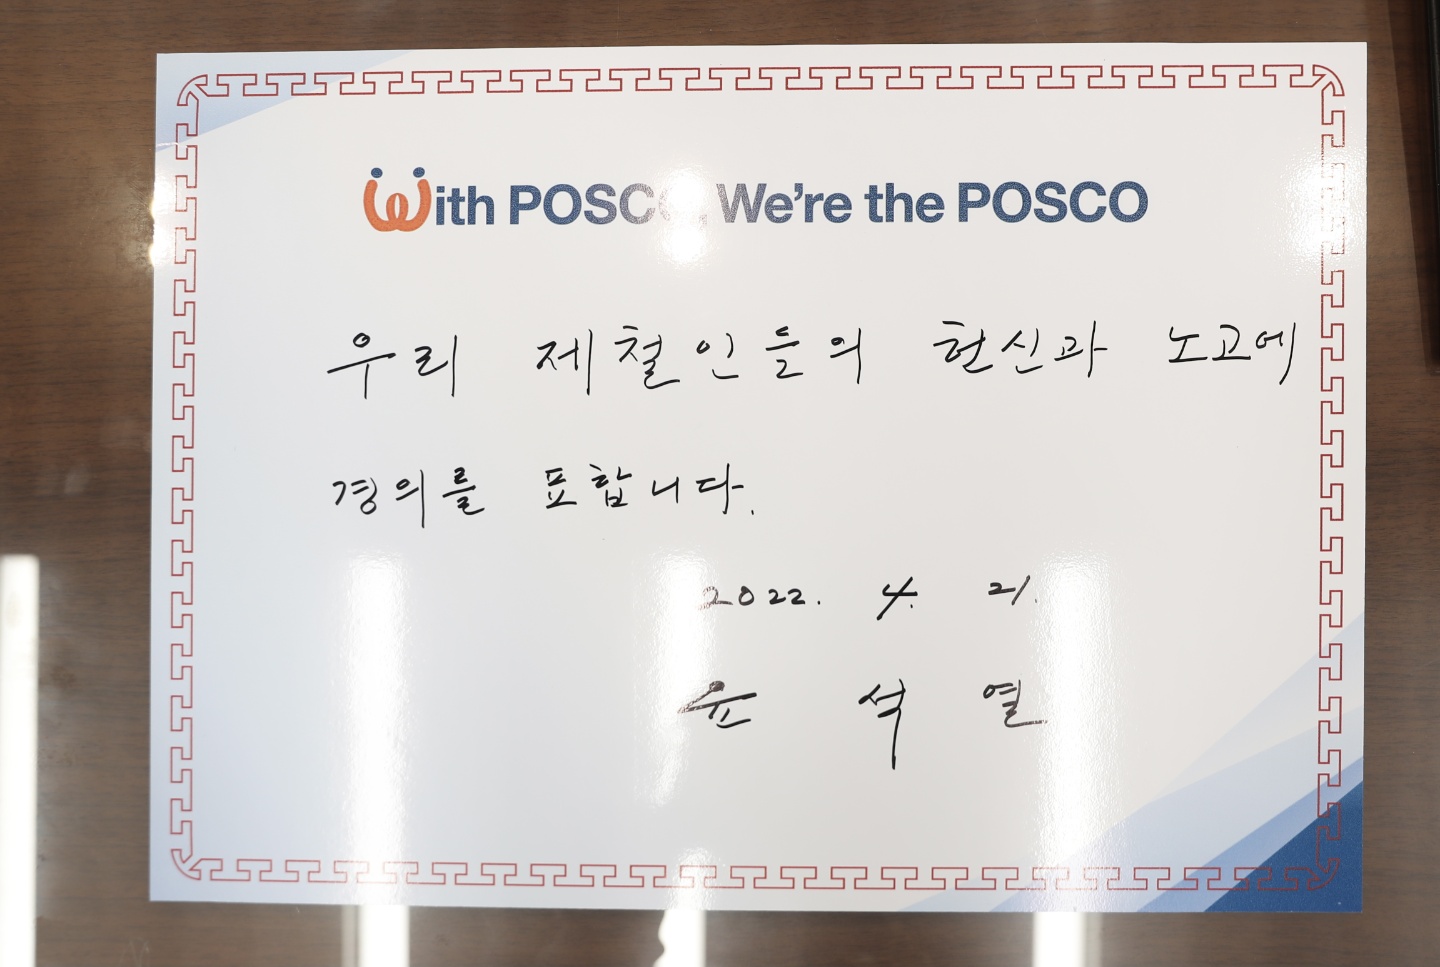 With POSCO, We're the POSCO
우리 제철인들의 헌신과 노고에
경의를 표합니다.
2022. 4. 21.
윤 석 열